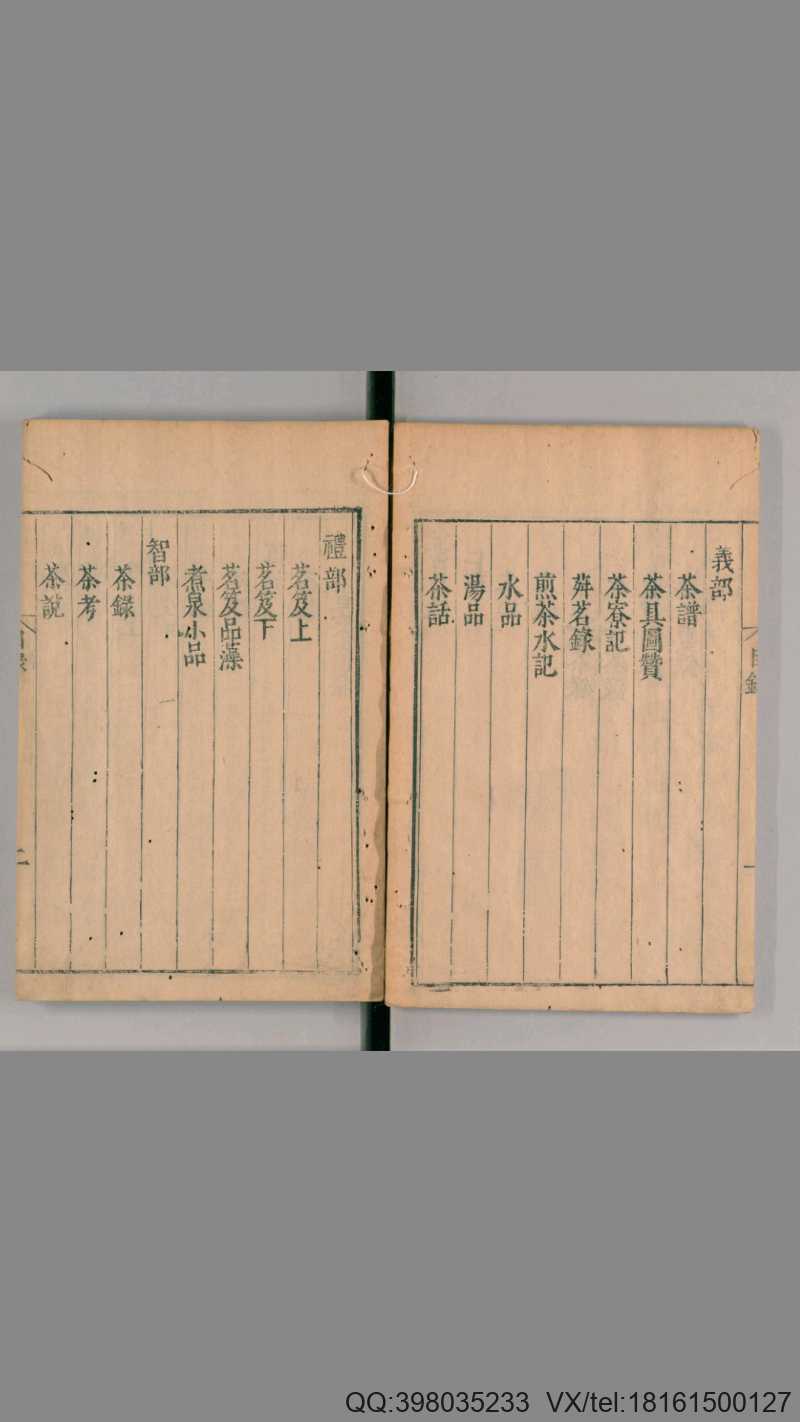 義部
茶譜
茶具圖贊
茶寮記
荈茗錄
煎茶水記
水品
湯品
茶話
禮部
茗笈上
茗笈下
茗笈品藻
煮泉小品
智部
茶錄
茶考
茶說
目錄
一
目錄
二
QQ:398035233 VX/tel:18161500127